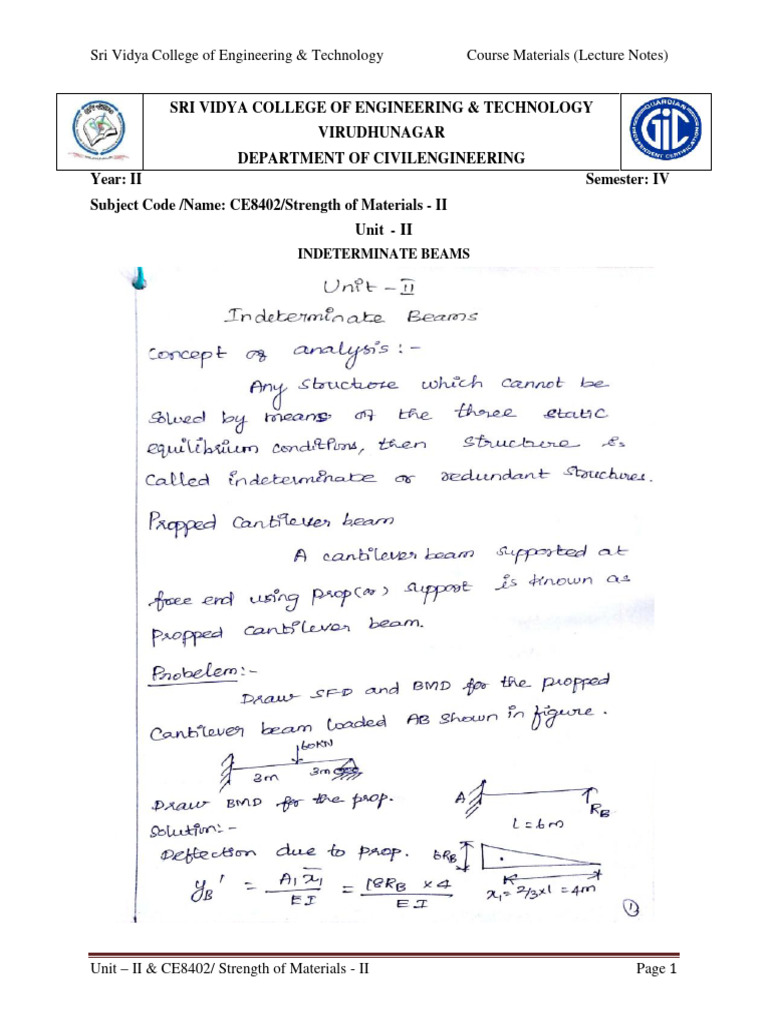 Sri Vidya College of Engineering & Technology Course Materials (Lecture Notes)
SRI VIDYA COLLEGE OF ENGINEERING & TECHNOLOGY
VIRUDHUNAGAR
DEPARTMENT OF CIVILENGINEERING
GUARDIAN
GIC
INDEPENDENT CERTIFICATION
Year: II Semester: IV
Subject Code /Name: CE8402/Strength of Materials - II
Unit - II
INDETERMINATE BEAMS
Unit - II
Indeterminate Beams
Concept of analysis:-
Any structure which cannot be
solved by means of the three static
equilibrium conditions, then structure is
called indeterminate or redundant structures.
Propped cantilever beam
A cantilever beam supported at
free end using prop (or) support is known as
propped cantilever beam.
Probelem:-
Draw SFD and BMD for the propped
Cantilever beam loaded AB shown in figure.
60KN
3m 3m
Draw BMD for the prop.
A RB
L = 6m
Solution:-
Deflection due to prop. 6RB
yB' = A1 x̄1 / EI = 18RB × 4 / EI
x1 = 2/3 × l = 4m
1
Unit – II & CE8402/ Strength of Materials - II Page 1